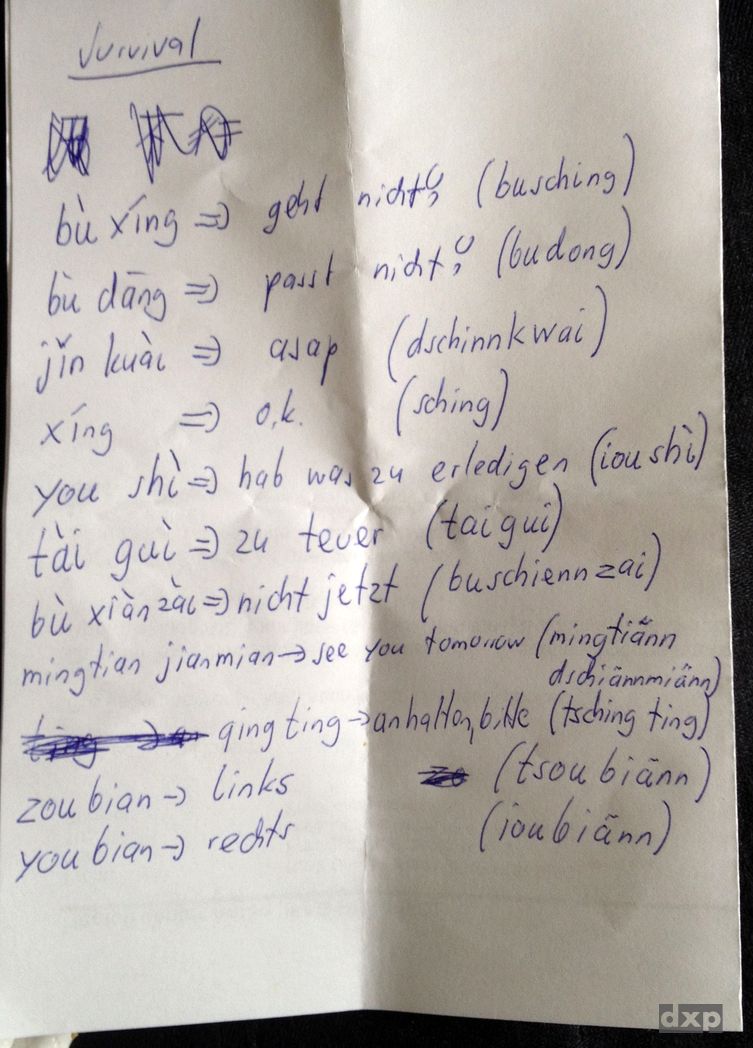 Survival
bù xíng => geht nicht? (busching)
bù dāng => passt nicht? (budong)
jǐn kuài => asap (dschinnkwai)
xíng => o.k. (sching)
you shì => hab was zu erledigen (iou shì)
tài guì => zu teuer (taigui)
bù xiàn zài => nicht jetzt (buschiennzai)
mingtian jianmian -> see you tomorrow (mingtiänn
dschiännmiänn)
qing ting -> anhalten, bitte (tsching ting)
zou bian -> links (tsou biänn)
you bian -> rechts (ioubiänn)
dxp